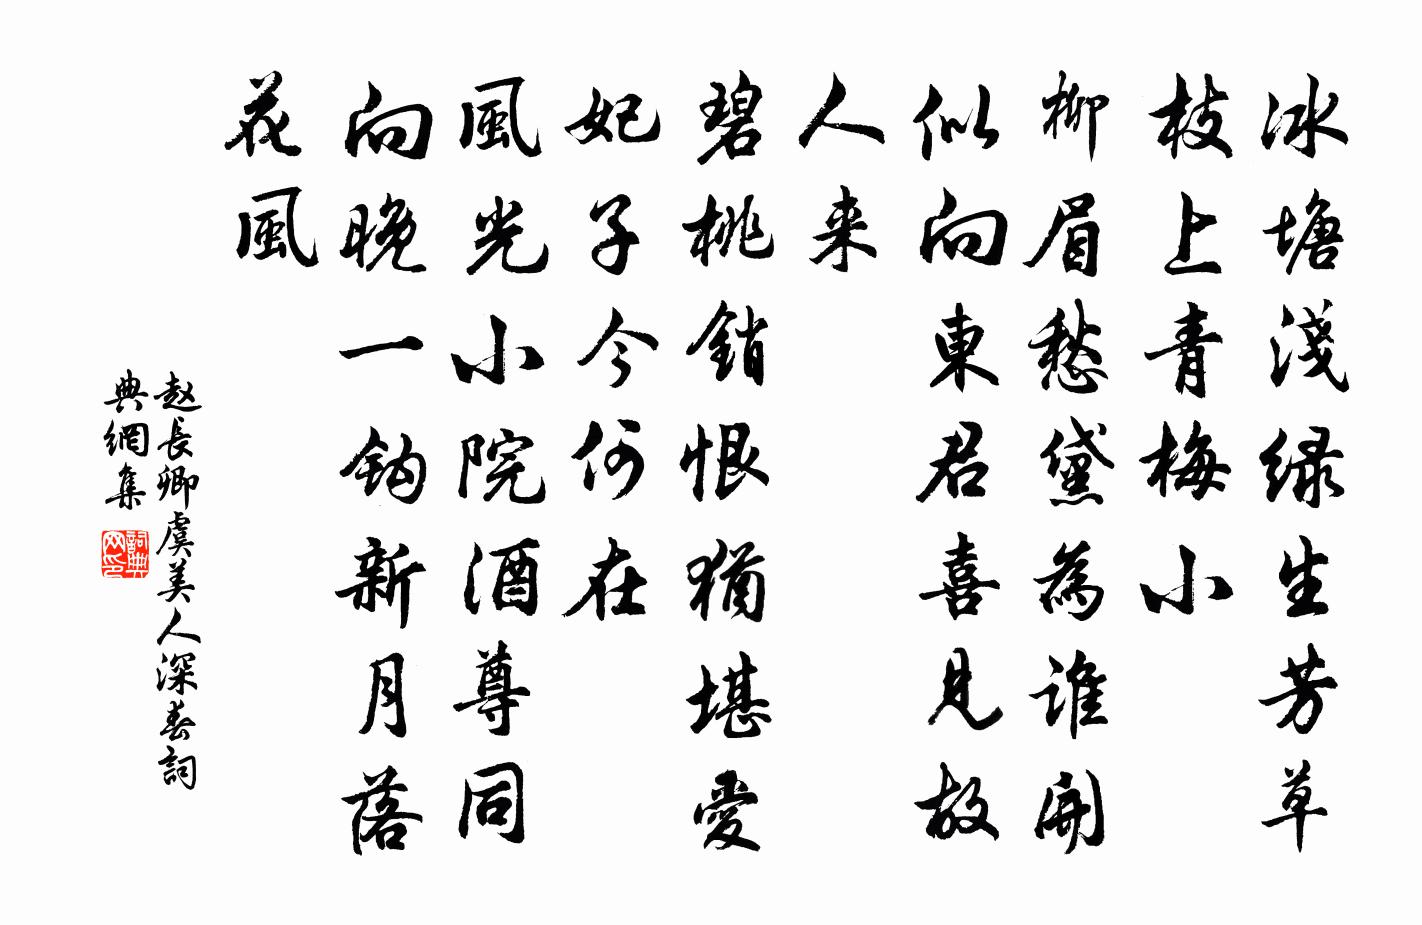 冰塘淺綠生芳草
枝上青梅小
柳眉愁黛為誰開
似向東君喜見故
人来
碧桃銷恨猶堪愛
妃子今何在
風光小院酒尊同
向晚一鈎新月落
花風
赵長卿虞美人深春詞
典網集
詞典
网印